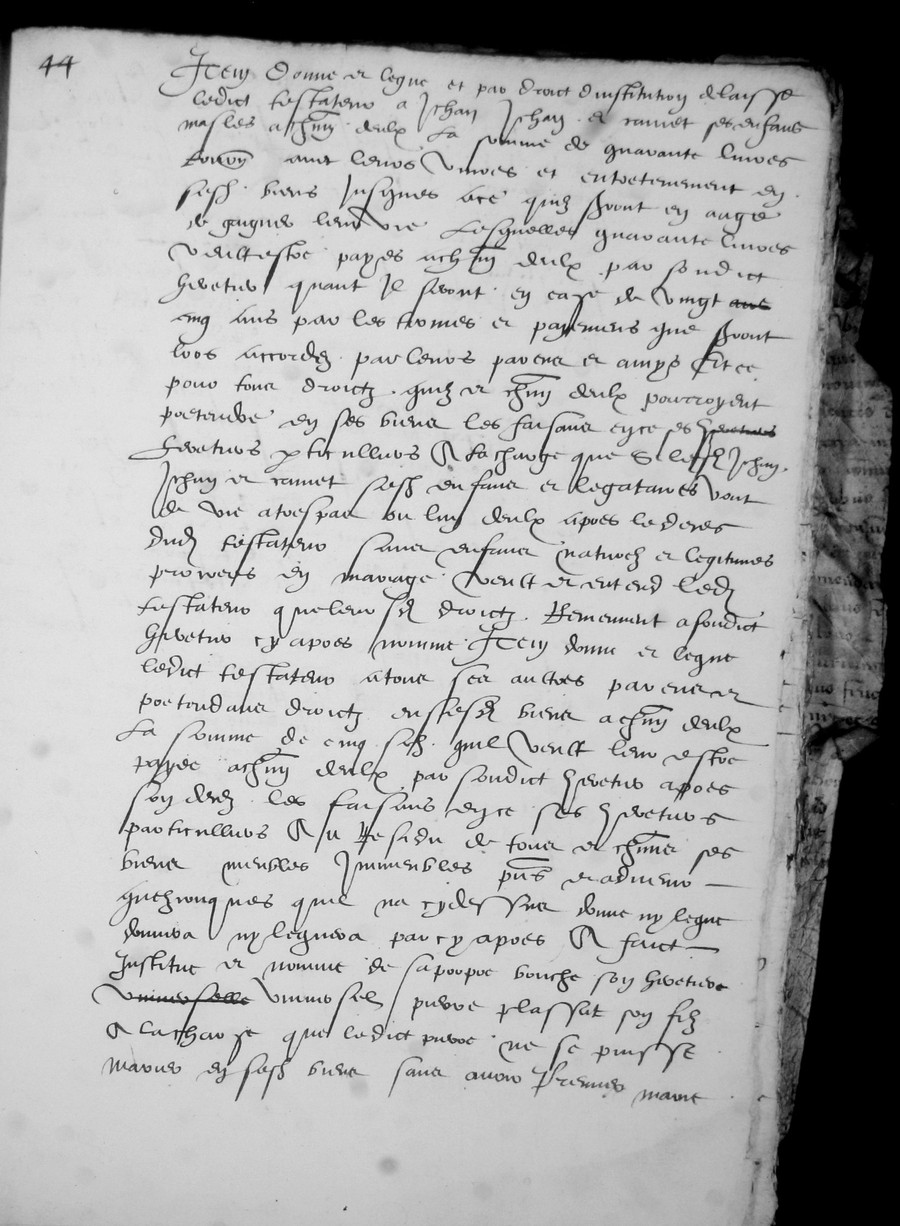 44
Item donne et legue et par droict dinstitution delaisse
ledict testateur a Jehan Jehan et ramet ses enfans
masles a chun deulx La somme de quarante livres
tournoys aint leurs vivres et entretenement en
sesd biens Jusques ace quilz seront en aage
de gaigner leur vie Lesquelles quarante livres
veult estre payes achun deulx par sondict
heretier quant Il seront en eage de vingt
cinq ans par les termes et payemens que seront
lors accordez par leurs parens et amys Et ce
pour tous droictz quilz et chun deulx pourroyent
pretendre en ses biens les faisans en ce ses heretiers
heretiers particulliers A la charge que Si lesd Jehan
Jehan et ramet sesd enfans et legataires vont
de vie a trespas ou lun deulx apres le deces
dud testateur sans enfans naturelz et legitimes
procreez en mariage veult et entend led
testateur que leursd droictz Reviennent a sondict
heretier cy apres nomme Item donne et legue
ledict testateur a tous ses aultres parens et
pretendans droictz en sesd biens a chun deulx
La somme de cinq solz quil veult leur estre
payee achun deulx par sondict heretier apres
son deces les faisans en ce ses heretiers
particulliers Au Residu de tous et chuns ses
biens meubles Immeubles pns et advenir
quelzconques quil na cy dessus donne ny legue
donnera ny leguera par cy apres A faict
Institue et nomme de sa propre bouche son heretier
universelle universel pierre plassut son filz
A la charge que ledict pierre ne se puisse
marier en sesd biens sans avoir premier marie